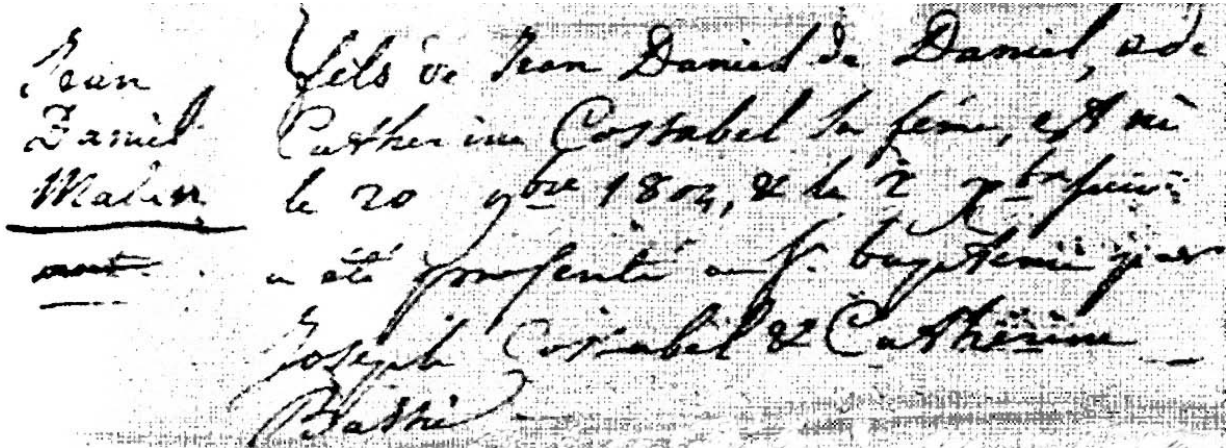 Jean
Daniel
Malan
mort
fils de Jean Daniel de Daniel, & de
Catherine Costabel sa feme, est né
le 20 9bre 1804, & le 2 Xbre suiv.
a été presenté au St. baptême par
Joseph Costabel & Catherine